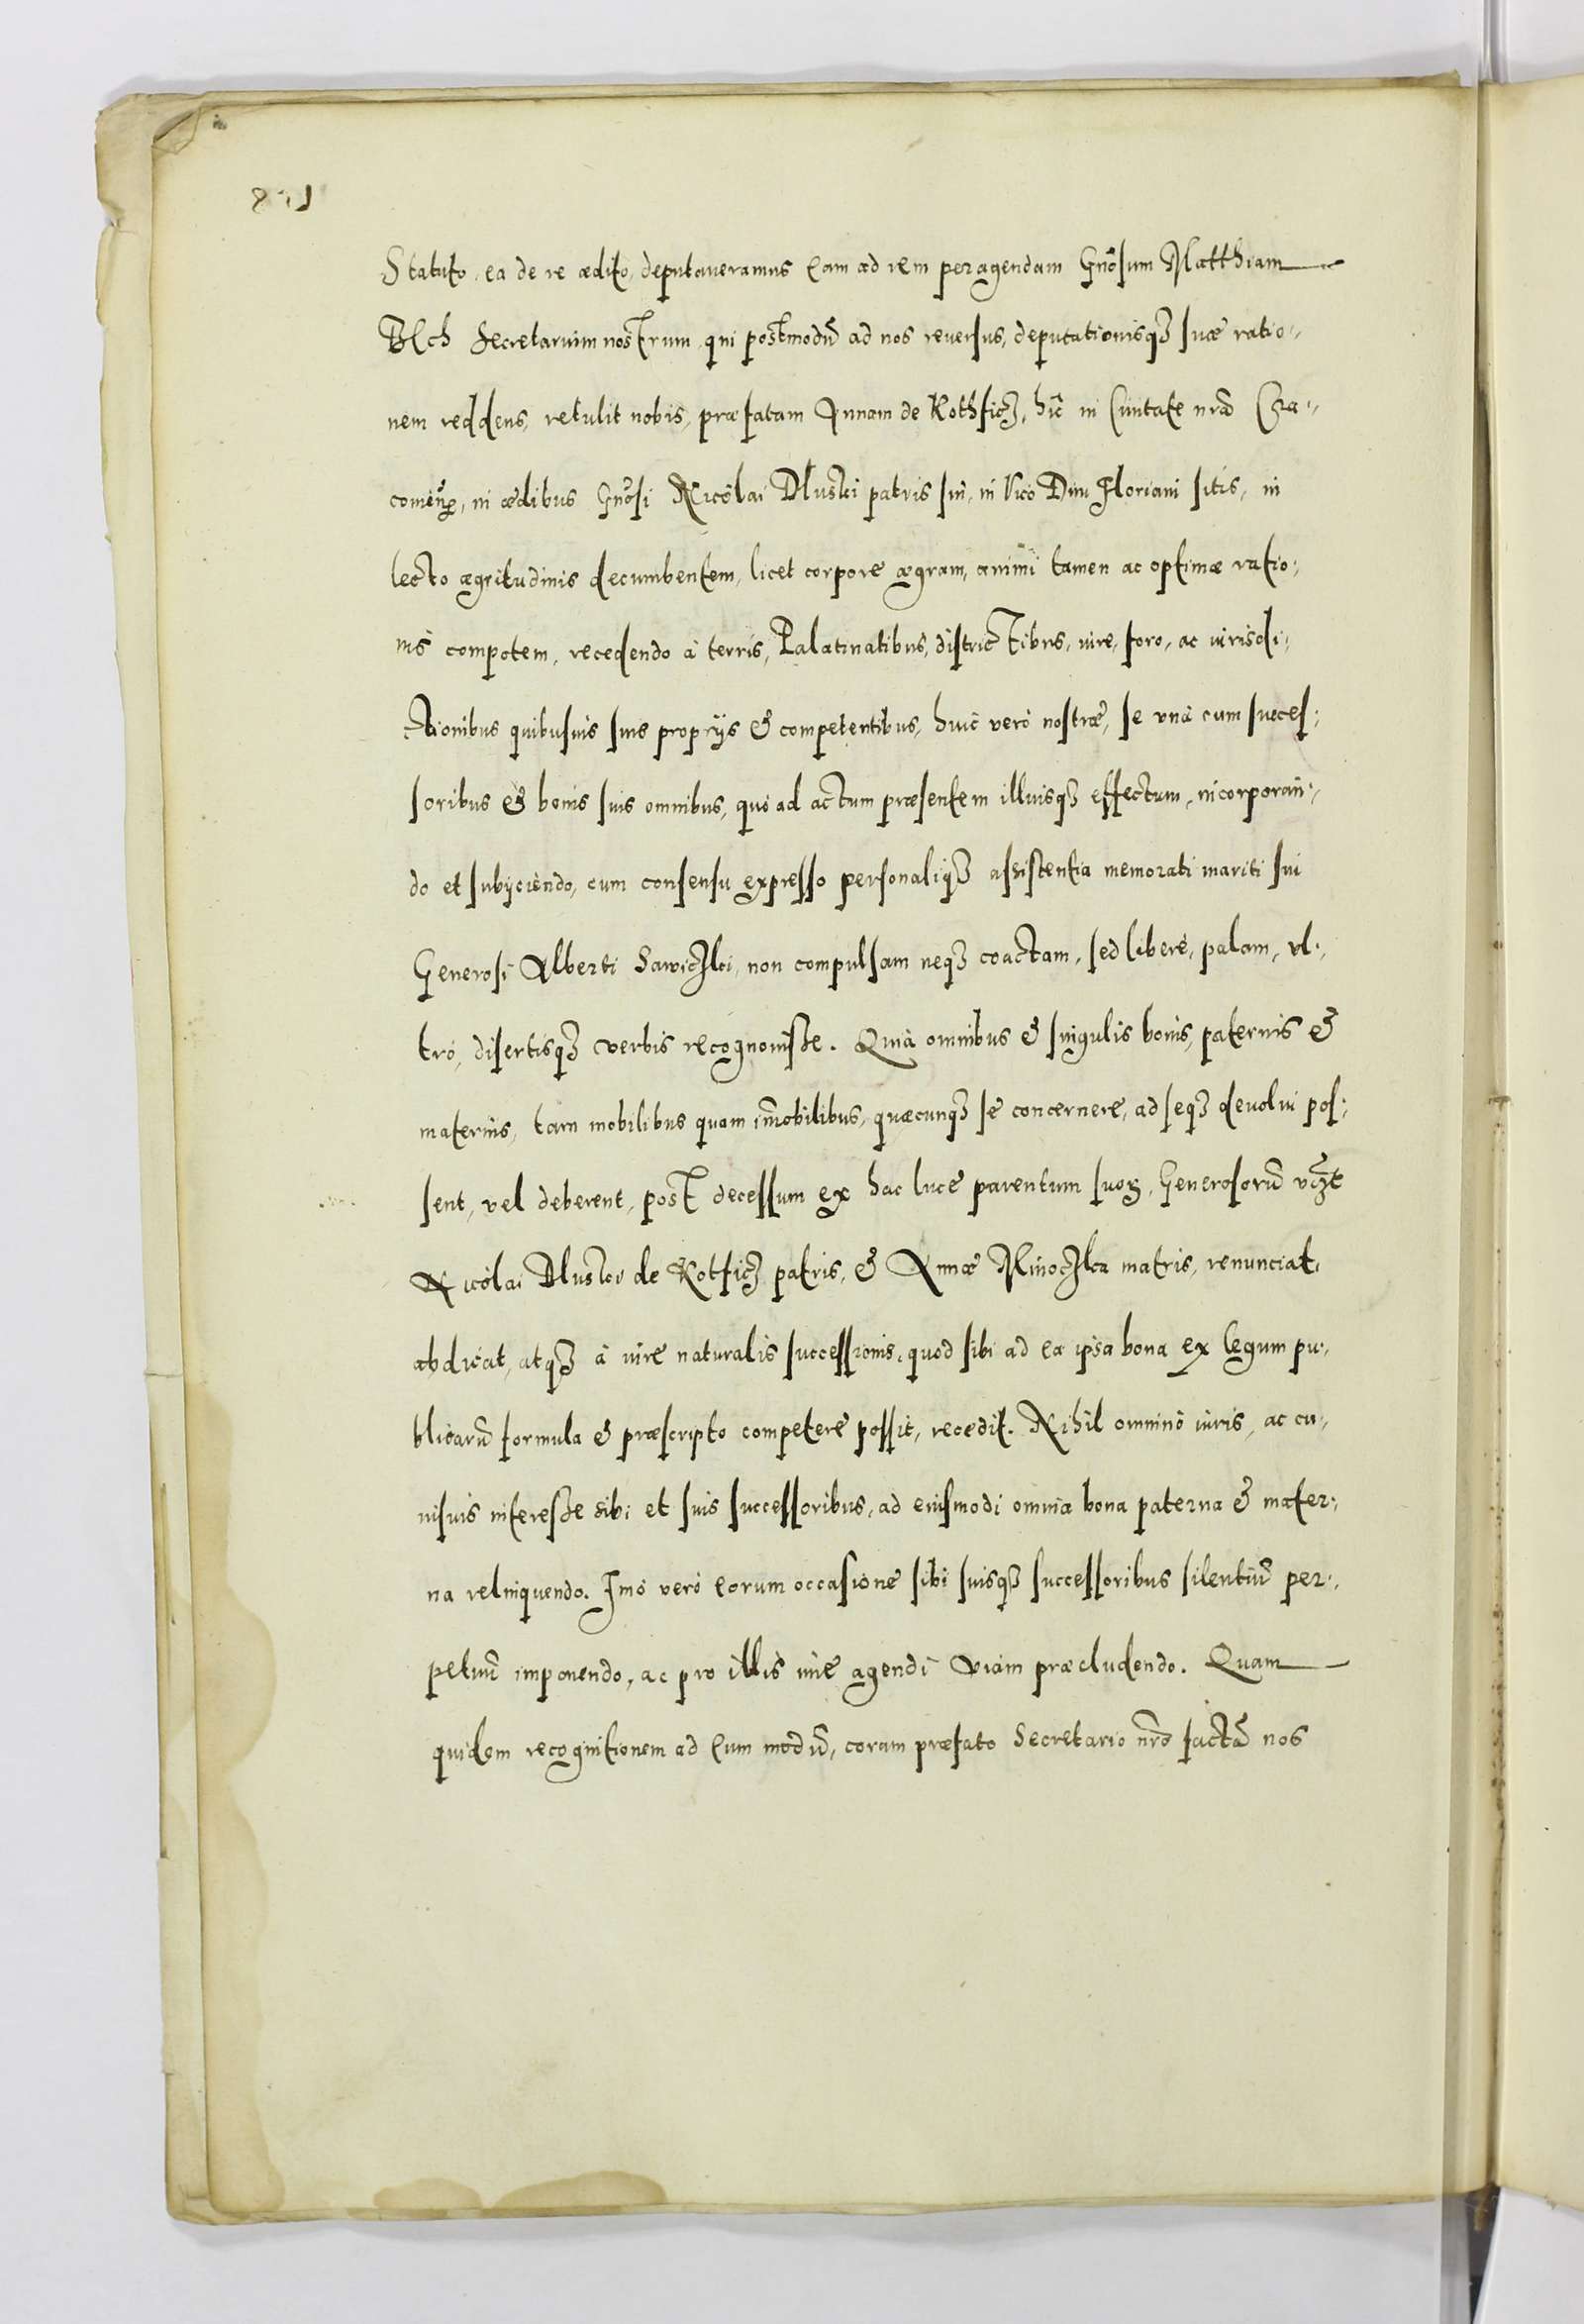 Statuto, ea de re ædito, deputaveramus eam ad rem peragendam Gñosum Matthiam
secretarium nostrum, qui postmodũ ad nos reversus, deputationisq3 suæ ratio:
nem reddens, retulit nobis, præfatam Annam de Kothficz, hîc in Civitate nrã Cra:
covieñ, in ædibus Gñosi Nicolai Dluski patris sui, in vico Divi Floriani sitis, in
lecto ægritudinis decumbentem, licet corpore ægram, animi tamen ac optimæ ratio:
nis compotem, recedendo à terris, Palatinatibus, districtibus, iure, foro, ac iurisdi:
ctionibus quibusuis suis proprijs & competentibus, huic verò nostræ, se vnà cum succes:
soribus & bonis suis omnibus, quò ad actum præsentem illiusq3 effectum, incorporan:
do et subijciendo, cum consensu expresso personaliq3 assistentia memorati mariti sui
Generosi Alberti Sawiczki, non compulsam neq3 coactam, sed liberè, palam, vl:
trò, disertisq3 verbis recognouisse. Quia omnibus & singulis bonis, paternis &
maternis, tam mobilibus quam im̃obilibus, quæcunq3 se concernere, ad seq3 deuolui pos:
sent, vel deberent, post decessum ex hac luce parentum suor, Generosorũ vczt
Nicolai Dluski de Kotficz patris, & Annæ Minoczka matris, renunciat,
abdicat, atq3 à iure naturalis successionis, quod sibi ad ea ipsa bona ex legum pu:
blicarũ formula & præscripto competere possit, recedit. Nihil omninò iuris, ac cu:
iusuis interesse sibi et suis successoribus, ad eiusmodi omnia bona paterna & mater:
na relinquendo. Imò verò eorum occasione sibi suisq3 successoribus silentiũ per:
petuũ imponendo, ac pro illis iure agendi viam præcludendo. Quam
quidem recognitionem ad eum modũ, coram præfato Secretario nr̃o factã nos